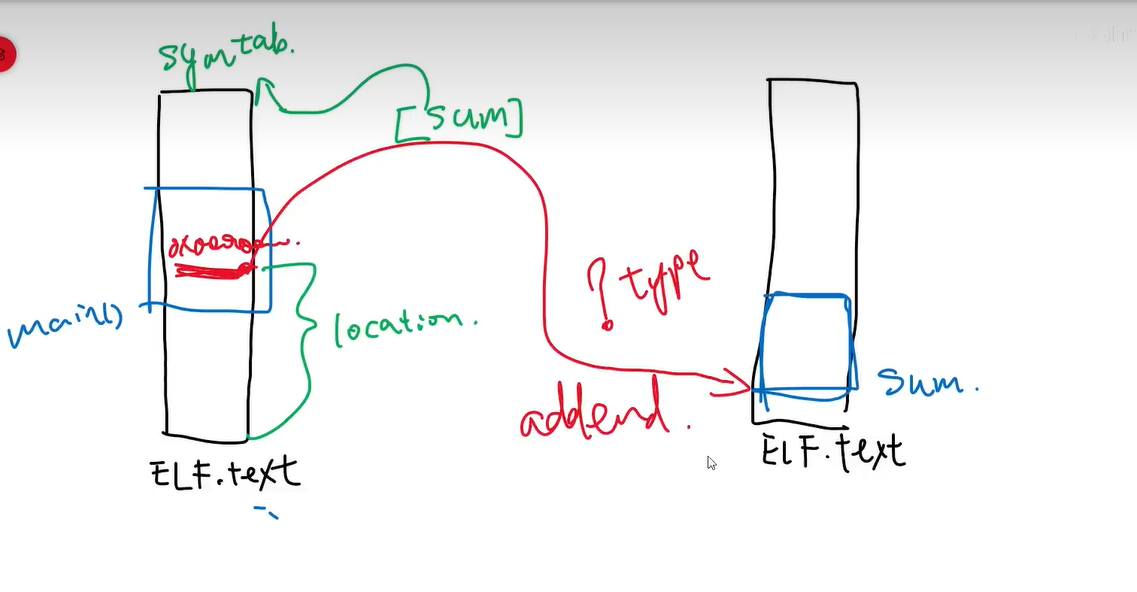 symtab.
[sum]
? type
main()
location.
addend.
sum.
ELF.text
ELF.text